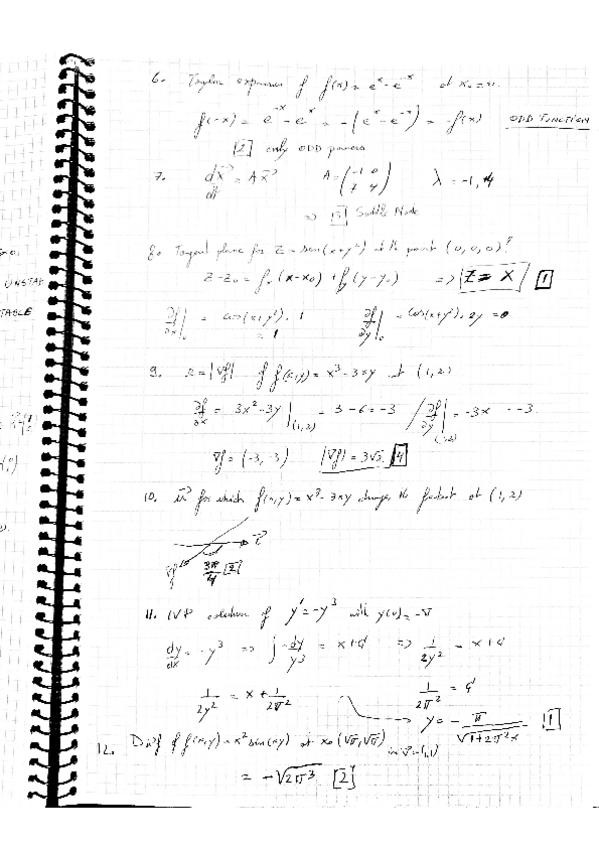 6. Taylor expansion of f(x) = e^x - e^-x at x₀ =
f(-x) = e^-x - e^x = -(e^x - e^-x) = -f(x) ODD FUNCTION
[2] only ODD powers
7. dx/dt = Ax A = (-1 0 / 7 4) λ = -1, 4
=> Saddle Node
8. Tangent plane for z = sin(x+y²) at the point (0,0,0)?
UNSTAB
z - z₀ = fx (x-x₀) + fy (y-y₀) => z = x [1]
TABLE
∂f/∂x|₀ = cos(x+y²). 1 ∂f/∂y|₀ = cos(x+y²). 2y = 0
= 1
9. = |∇f| of f(x,y) = x³ - 3xy at (1,2)
∂f/∂x = 3x² - 3y|(1,2) = 3 - 6 = -3 / ∂f/∂y|(1,2) = -3x = -3
∇f = (-3, -3) |∇f| = 3√2 [4]
10. for which f(x,y) = x³ - 3xy change the fastest at (1,2)
∇f 3π/4 [2]
11. IVP solution of y' = -y³ with y(0) = -π
dy/dx = -y³ => ∫ -dy/y³ = x + C => 1/2y² = x + C
1/2y² = x + 1/2π² 1/2π² = C
y = - π/√(1+2π²x) [1]
12. of f(x,y) = x² sin(xy) at x₀ (√π, √π) in (1,1)
= -√2π³ [2]